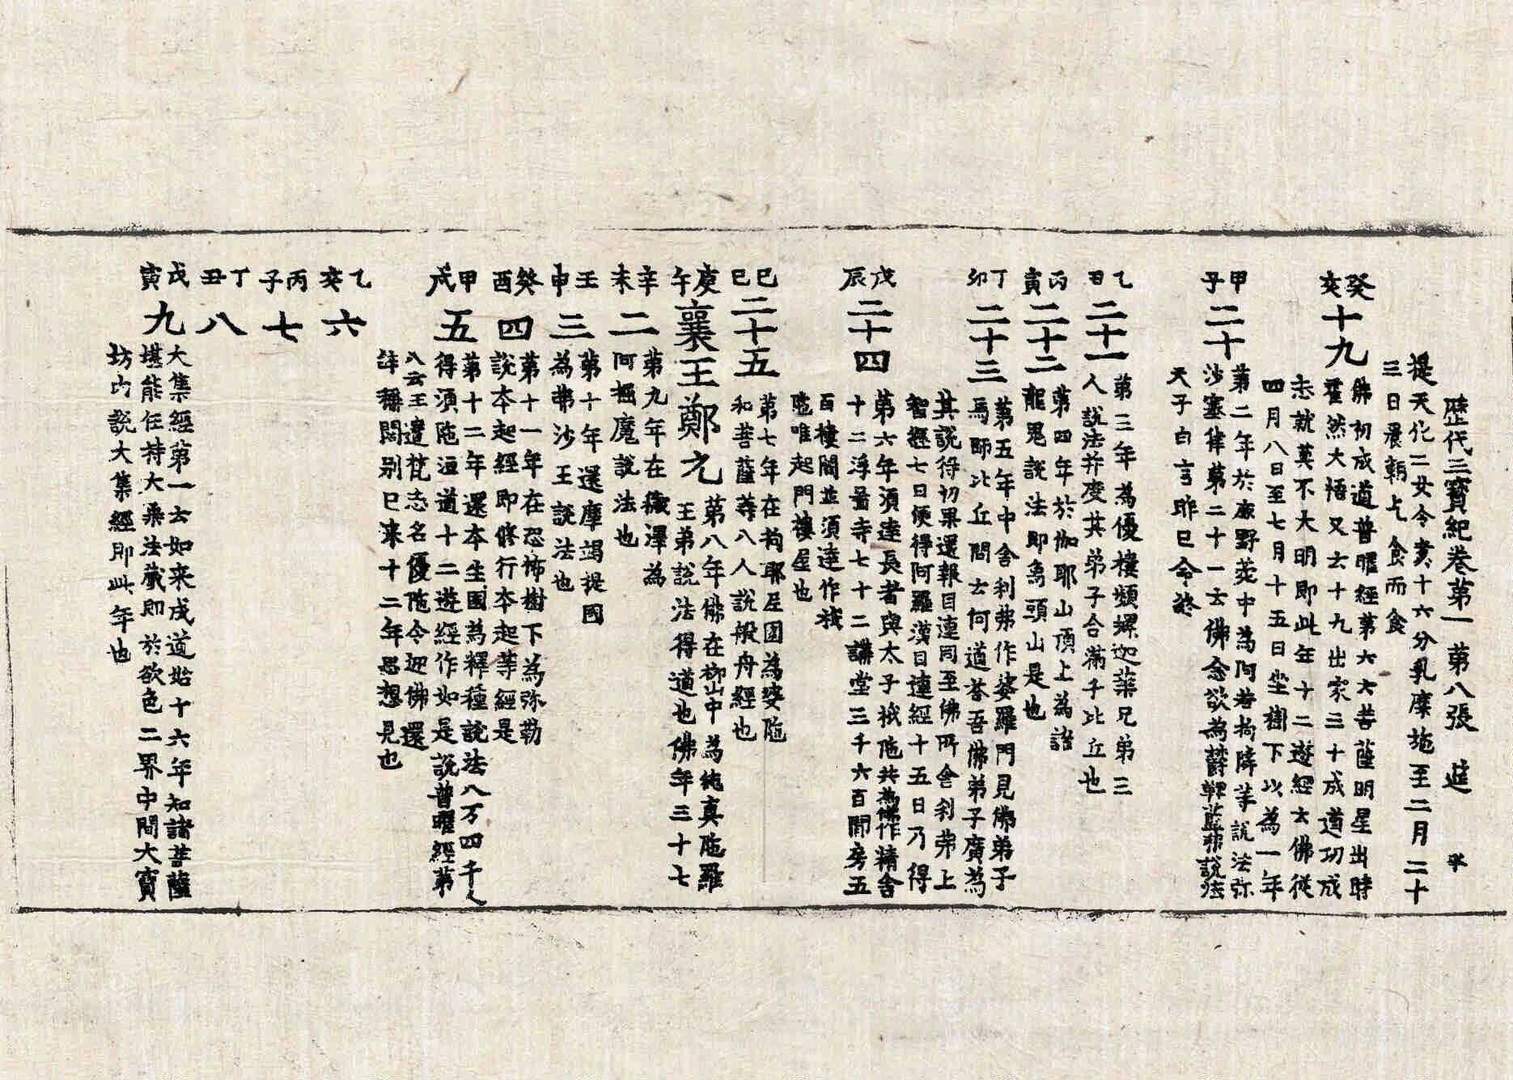 歷代三寶紀卷第一 第八張 莚
提天化二女令費十六分乳糜施至二月二十
三日晨朝乞食而食
癸亥十九
佛初成道普曜經第六云菩薩明星出時
霍然大悟又云十九出家三十成道功成
志就莫不大明即此年十二遊經云佛從
四月八日至七月十五日坐樹下以為一年
甲子二十
第二年於鹿野苑中為阿若憍陳等說法弥
沙塞律第二十一云佛念欲為欝鞞藍弗說法
天子白言昨已命終
乙丑二十一
第三年為優樓頻螺迦葉兄弟三
人說法并度其弟子合滿千比丘也
丙寅二十二
第四年於伽耶山頂上為諸
龍鬼說法即象頭山是也
丁卯二十三
第五年中舍利弗作婆羅門見佛弟子
馬師比丘問云何道荅吾佛弟子廣為
其說得初果還報目連同至佛所舍利弗上
智經七日便得阿羅漢目連經十五日乃得
戊辰二十四
第六年須達長者與太子祇陁共為佛作精舍
十二浮圖寺七十二講堂三千六百閒房五
百樓閣並須達作祇
陁唯起門樓屋也
己巳二十五
第七年在拘耶尼國為婆陁
和菩薩等八人說般舟經也
庚午襄王鄭元
第八年佛在柳山中為純真陁羅
王弟說法得道也佛年三十七
辛未二
第九年在穢澤為
阿掘魔說法也
壬申三
第十年還摩竭提國
為弗沙王說法也
癸酉四
第十一年在恐怖樹下為弥勒
說本起經即修行本起等經是
甲戌五
第十二年還本生國為釋種說法八万四千人
得須陁洹道十二遊經作如是說普曜經第
八云王遣梵志名優陁令迎佛還
詳稱闊別已来十二年思想見也
乙亥六
丙子七
丁丑八
戊寅九
大集經第一云如来成道始十六年知諸菩薩
堪能任持大乘法藏即於欲色二界中間大寶
坊內說大集經即此年也